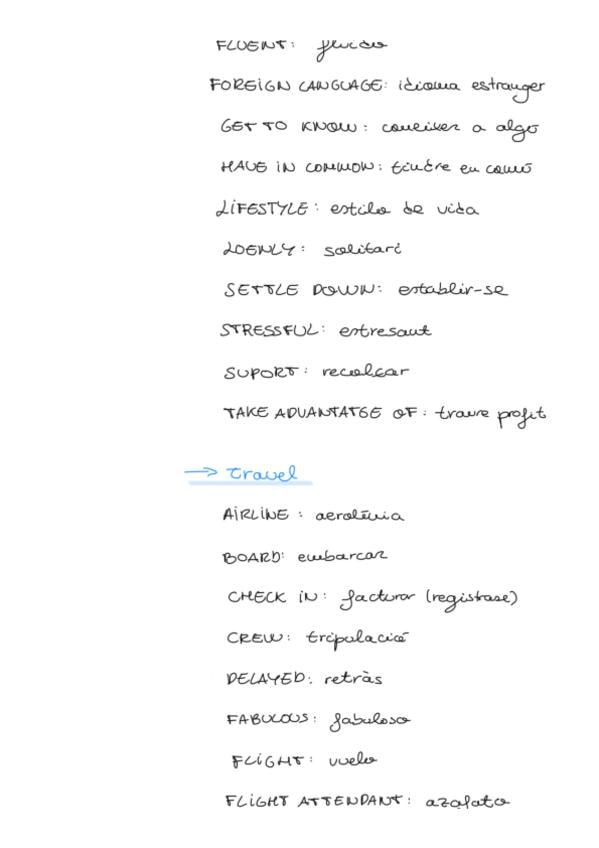 FLUENT: fluido
FOREIGN LANGUAGE: idioma estranger
GET TO KNOW: coneixer a algo
HAVE IN COMMON: tindre en comú
LIFESTYLE: estilo de vida
LOENLY: solitari
SETTLE DOWN: establir-se
STRESSFUL: estresant
SUPORT: recolçar
TAKE ADVANTATGE OF: traure profit
→ Travel
AIRLINE: aerolínia
BOARD: embarcar
CHECK IN: facturar (registrase)
CREW: tripulació
DELAYED: retràs
FABULOUS: fabuloso
FLIGHT: vuelo
FLIGHT ATTENDANT: azafato